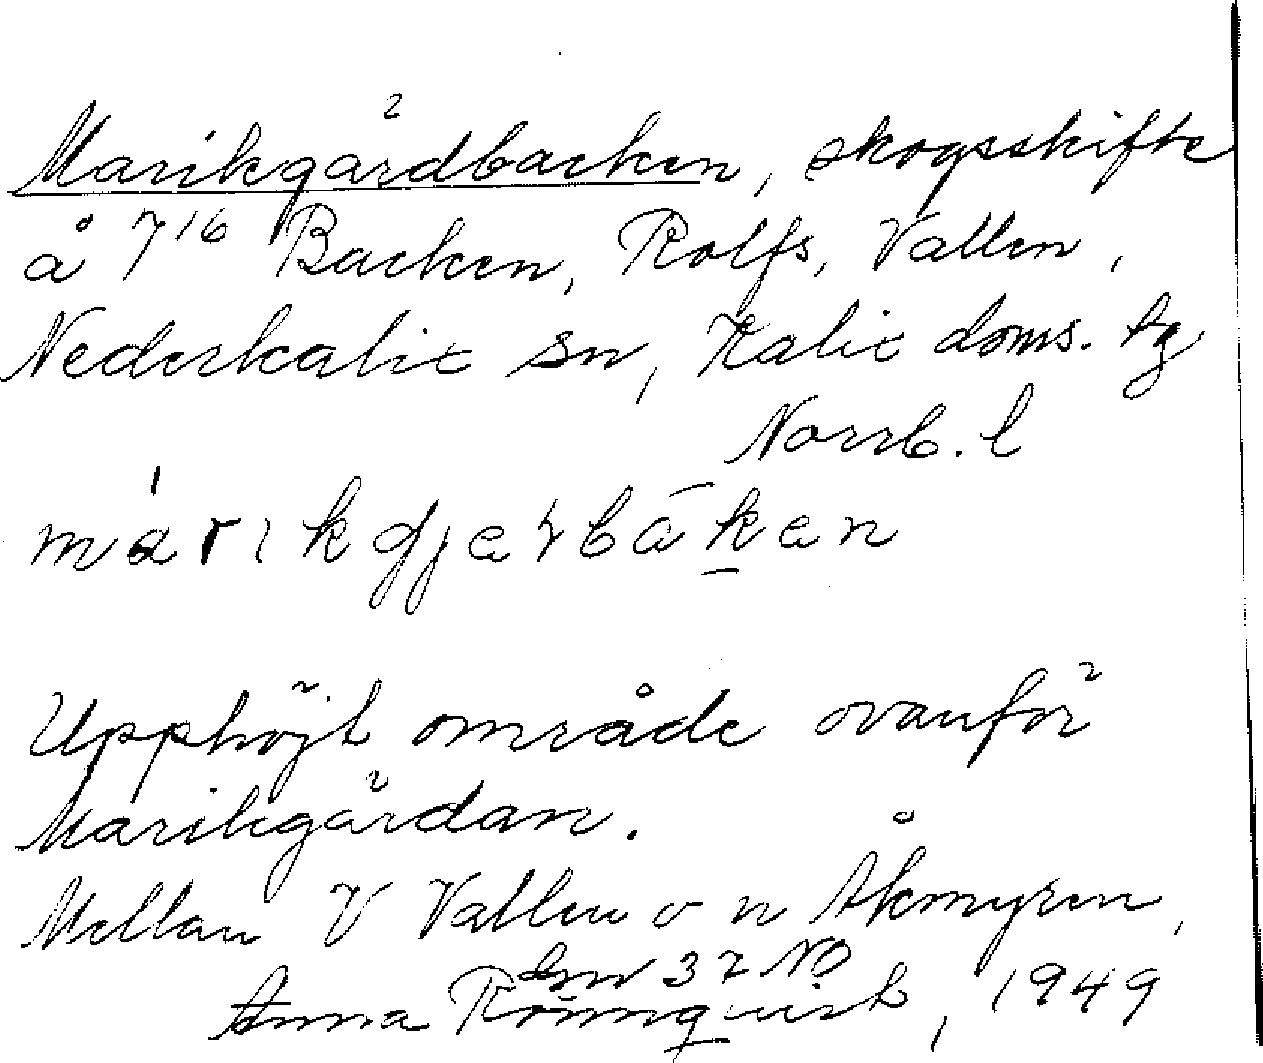 Marikgärdbacken, skogsskifte
å 7¹⁶ Backen, Rolfs, Vallen,
Nederkalix sn, Kalix doms. tg
Norrb. l
márıkgjerbāken
Upphöjt område ovanför
Marikgärdan.
Mellan V Vallen o n Åkmyren,
37 NO
Anna Rönnqvist, 1949